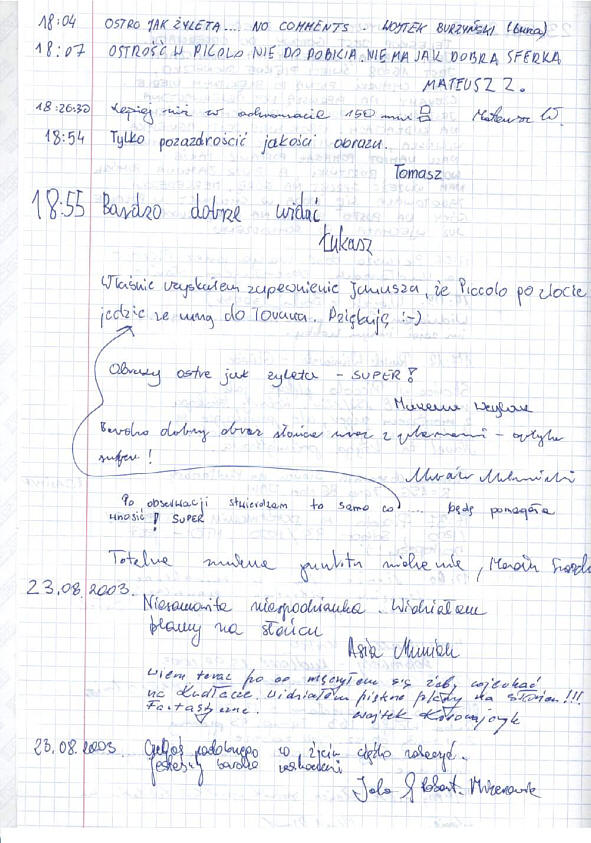 18:04 OSTRO JAK ŻYLETA... NO COMMENTS. WOJTEK BURZYŃSKI
18:07 OSTROŚĆ W PICOLO NIE DO POBICIA. NIE MA JAK DOBRA SFERKA
MATEUSZ Z.
18:26:30 Lepiej niż w achromacie 150 mm Mateusz W.
18:54 Tylko pozazdrościć jakości obrazu.
Tomasz
18:55 Bardzo dobrze widać
Łukasz
Właśnie uzyskałem zapewnienie Janusza, że Piccolo po zlocie
jedzie ze mną do Torunia. Dziękuję :-)
Obrazy ostre jak żyleta - SUPER!
Bardzo dobry obraz słońca wraz z plamami - optyka
super!
Po obserwacji stwierdzam to samo co ... będę pomagała
wnosić! SUPER
Totalna zmiana punktu widzenia, Marcin
23.08.2003. Niesamowita niespodzianka. Widziałam
plamy na słońcu
Asia
wiem teraz po co męczyłem się żeby wjechać
na Kudłacze. widziałem piękne plamy na słońcu!!!
Fantastyczne. Wojtek
23.08.2003. Czegoś podobnego w życiu ciężko zobaczyć.
Jesteśmy bardzo
Jola & Robert